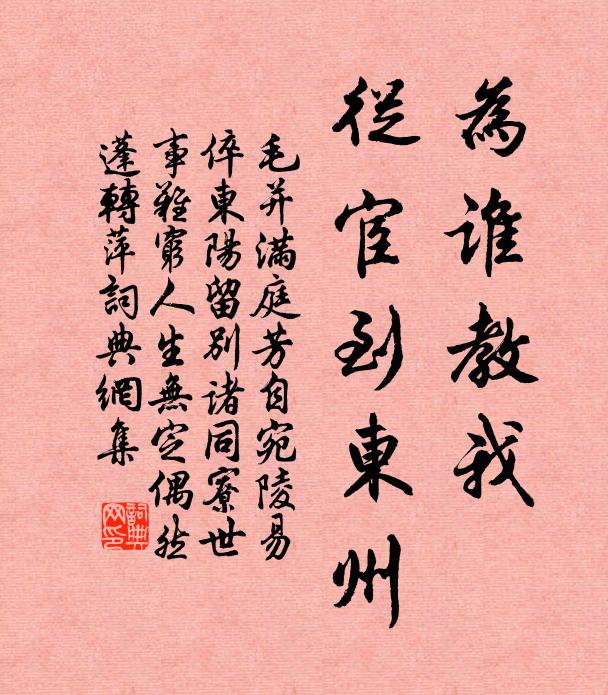 為誰教我
從宦到東州
毛并滿庭芳自宛陵易
倅東陽留別諸同寮世
事難窮人生無定偶然
蓬轉萍詞典網集
詞典
网印